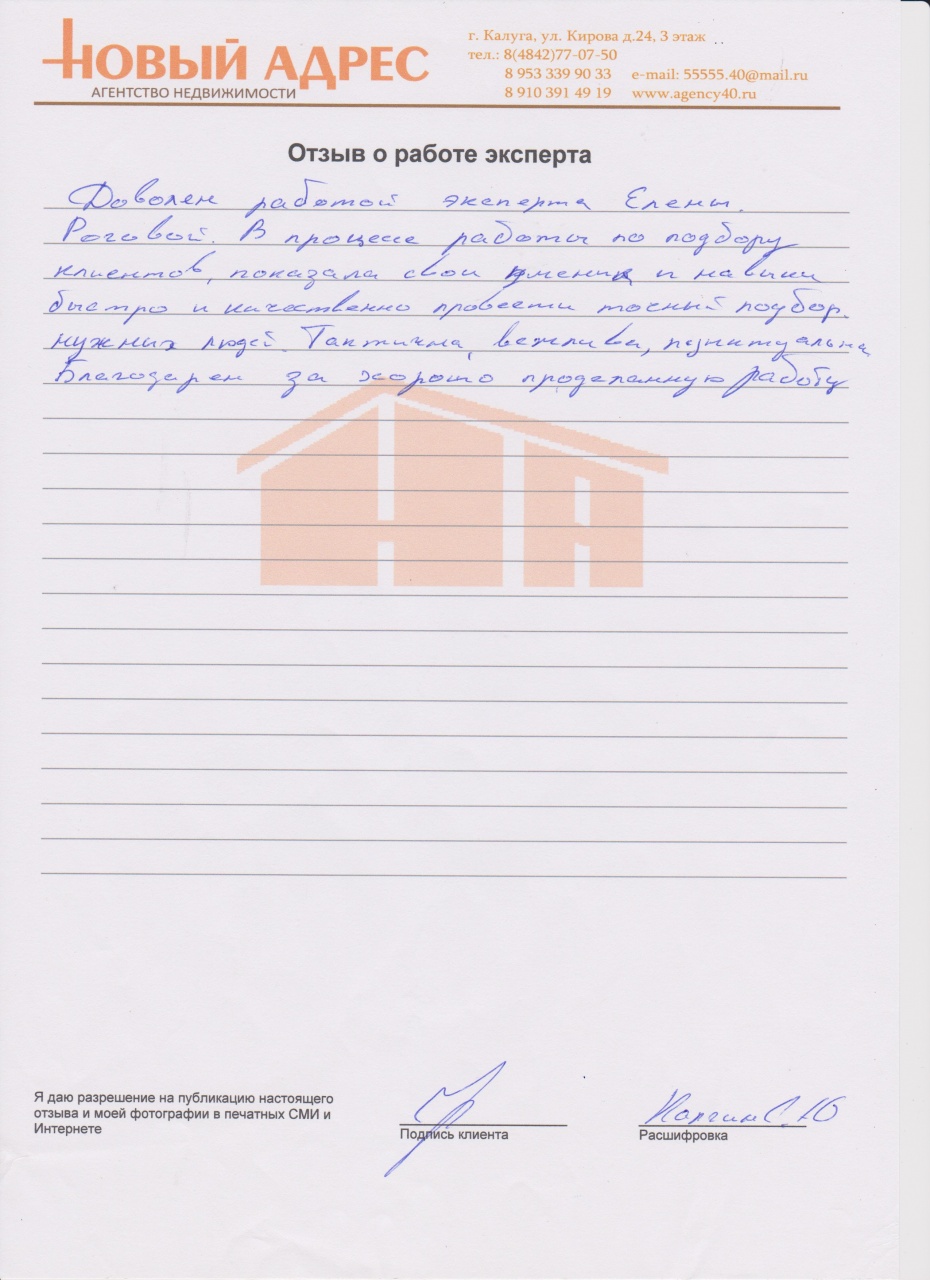 НОВЫЙ АДРЕС
АГЕНТСТВО НЕДВИЖИМОСТИ
г. Калуга, ул. Кирова д.24, 3 этаж
тел.: 8(4842)77-07-50
8 953 339 90 33 e-mail: 55555.40@mail.ru
8 910 391 49 19 www.agency40.ru
Отзыв о работе эксперта
Доволен работой эксперта Елены.
Роговой. В процессе работы по подбору
клиентов, показала свои умения и навыки
быстро и качественно провести точный подбор.
нужних людей. Тактична, вежлива, пунктуальна
Благодарен за хорошо проделанную работу
НА
Я даю разрешение на публикацию настоящего
отзыва и моей фотографии в печатных СМИ и
Интернете
Подпись клиента
С.Ю
Расшифровка